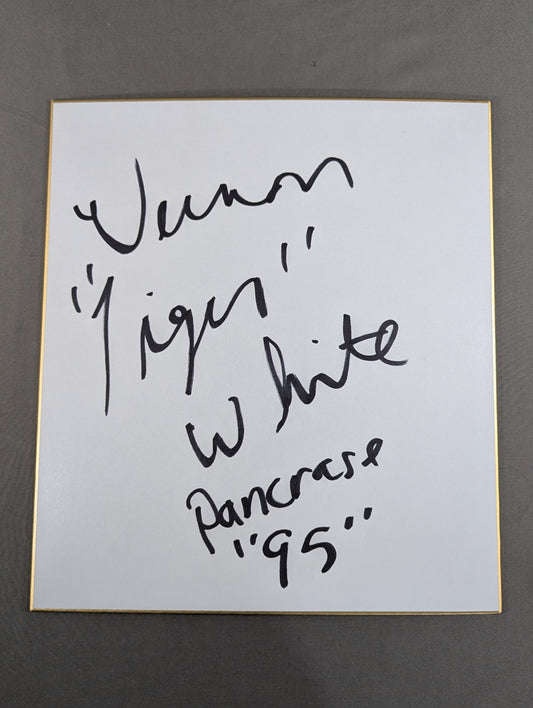 Vernon
"Tiger"
White
Pancrase
"95"